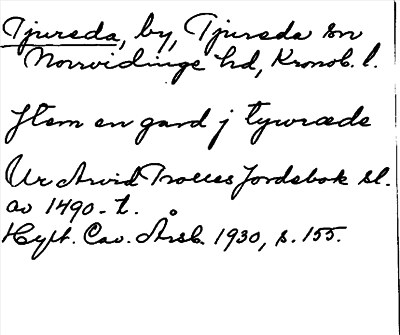 Tjureda, by, Tjureda sn
Norrvidinge hd, Kronob. l.
Item en gard j tywræde
Ur Arvid Trolles Jordebok sl.
av 1490-t.
Hylt. Cav. Årsb. 1930, s. 155.